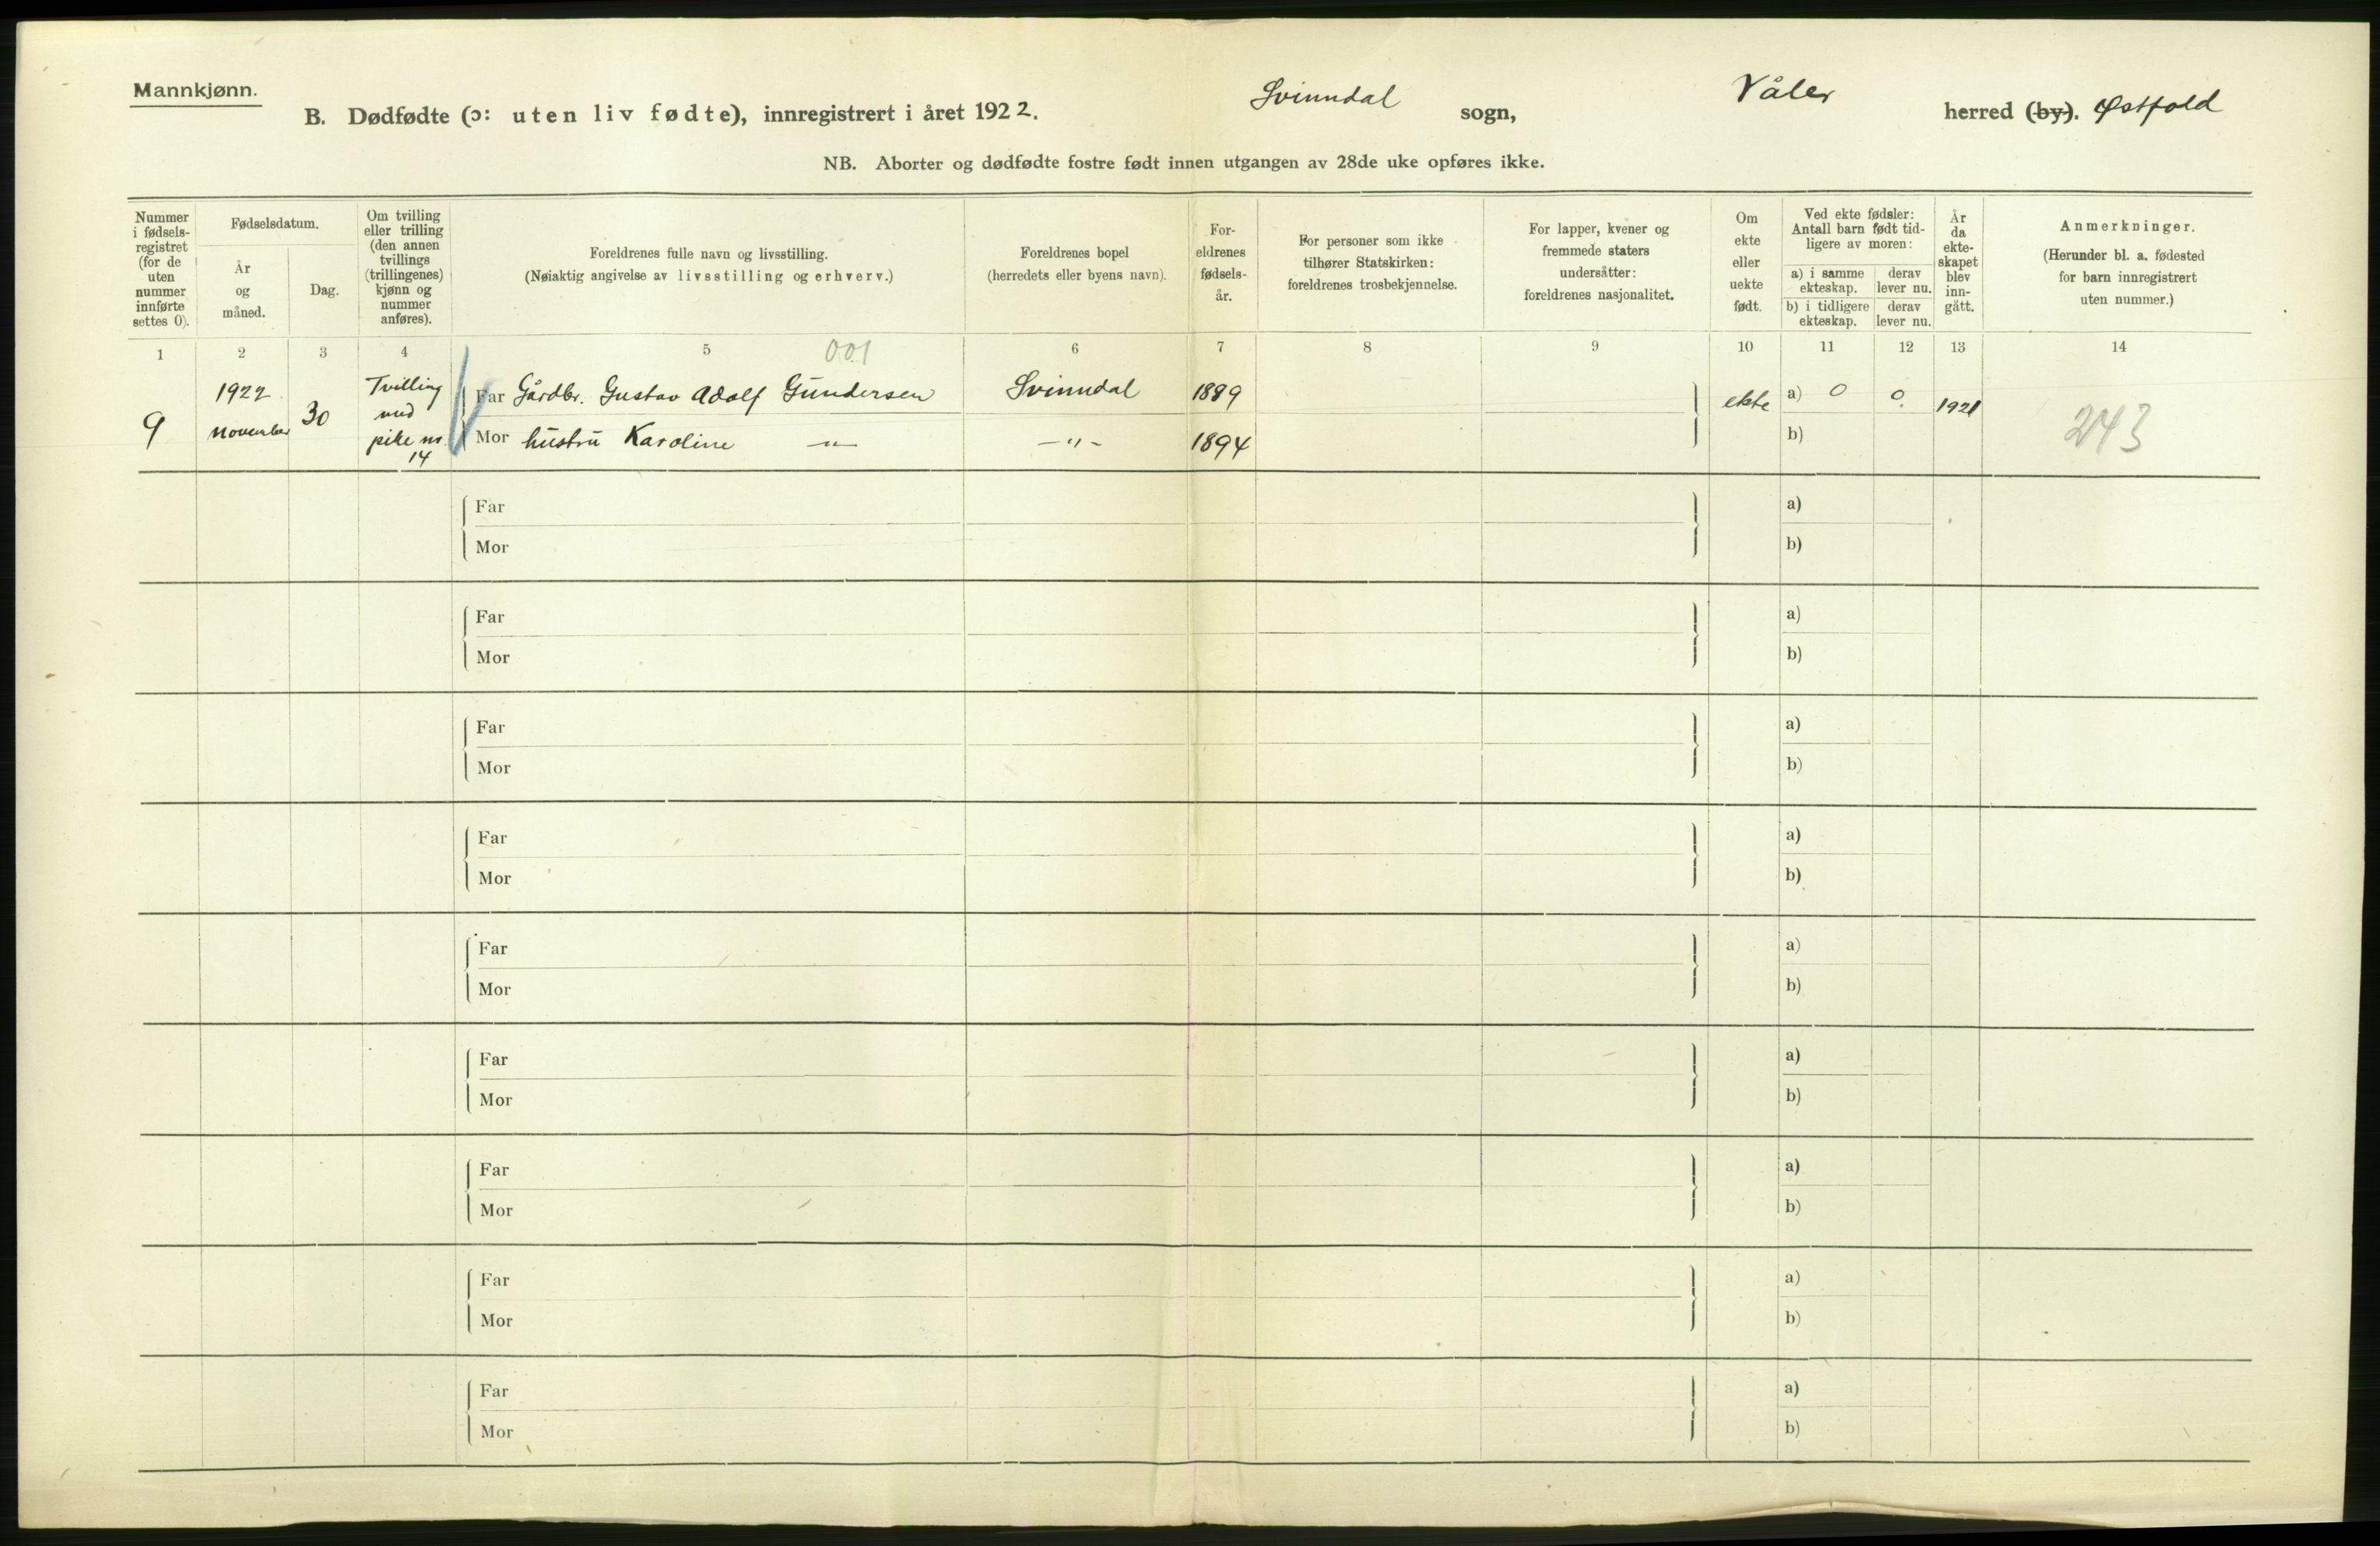 Mannkjønn.
B. Dødfødte (ɔ: uten liv fødte), innregistrert i året 1922. Svinndal sogn, Våler herred (by). Østfold
NB. Aborter og dødfødte fostre født innen utgangen av 28de uke opføres ikke.
Nummer
i fødsels-
registret
(for de
uten
nummer
innførte
settes 0).
Fødselsdatum.
År
og
måned.
Dag.
Om tvilling
eller trilling
(den annen
tvillings
(trillingenes)
kjønn og
nummer
anføres).
Foreldrenes fulle navn og livsstilling.
(Nøiaktig angivelse av livsstilling og erhverv.)
Foreldrenes bopel
(herredets eller byens navn).
For-
eldrenes
fødsels-
år.
For personer som ikke
tilhører Statskirken:
foreldrenes trosbekjennelse.
For lapper, kvener og
fremmede staters
undersåtter:
foreldrenes nasjonalitet.
Om
ekte
eller
uekte
født.
Ved ekte fødsler:
Antall barn født tid-
ligere av moren:
a) i samme
ekteskap.
derav
lever nu.
b) i tidligere
ekteskap.
derav
lever nu.
År
da
ekte-
skapet
blev
inn-
gått.
Anmerkninger.
(Herunder bl. a. fødested
for barn innregistrert
uten nummer.)
1 2 3 4 5 001 6 7 8 9 10 11 12 13 14
9
1922
November
30
Tvilling
med
pike nr
14
Far Gårdbr. Gustav Adolf Gundersen Svinndal 1889 ekte a) 0 0 1921 243
Mor hustru Karoline —"— —"— 1894 b)
Far a)
Mor b)
Far a)
Mor b)
Far a)
Mor b)
Far a)
Mor b)
Far a)
Mor b)
Far a)
Mor b)
Far a)
Mor b)
Far a)
Mor b)
Far a)
Mor b)